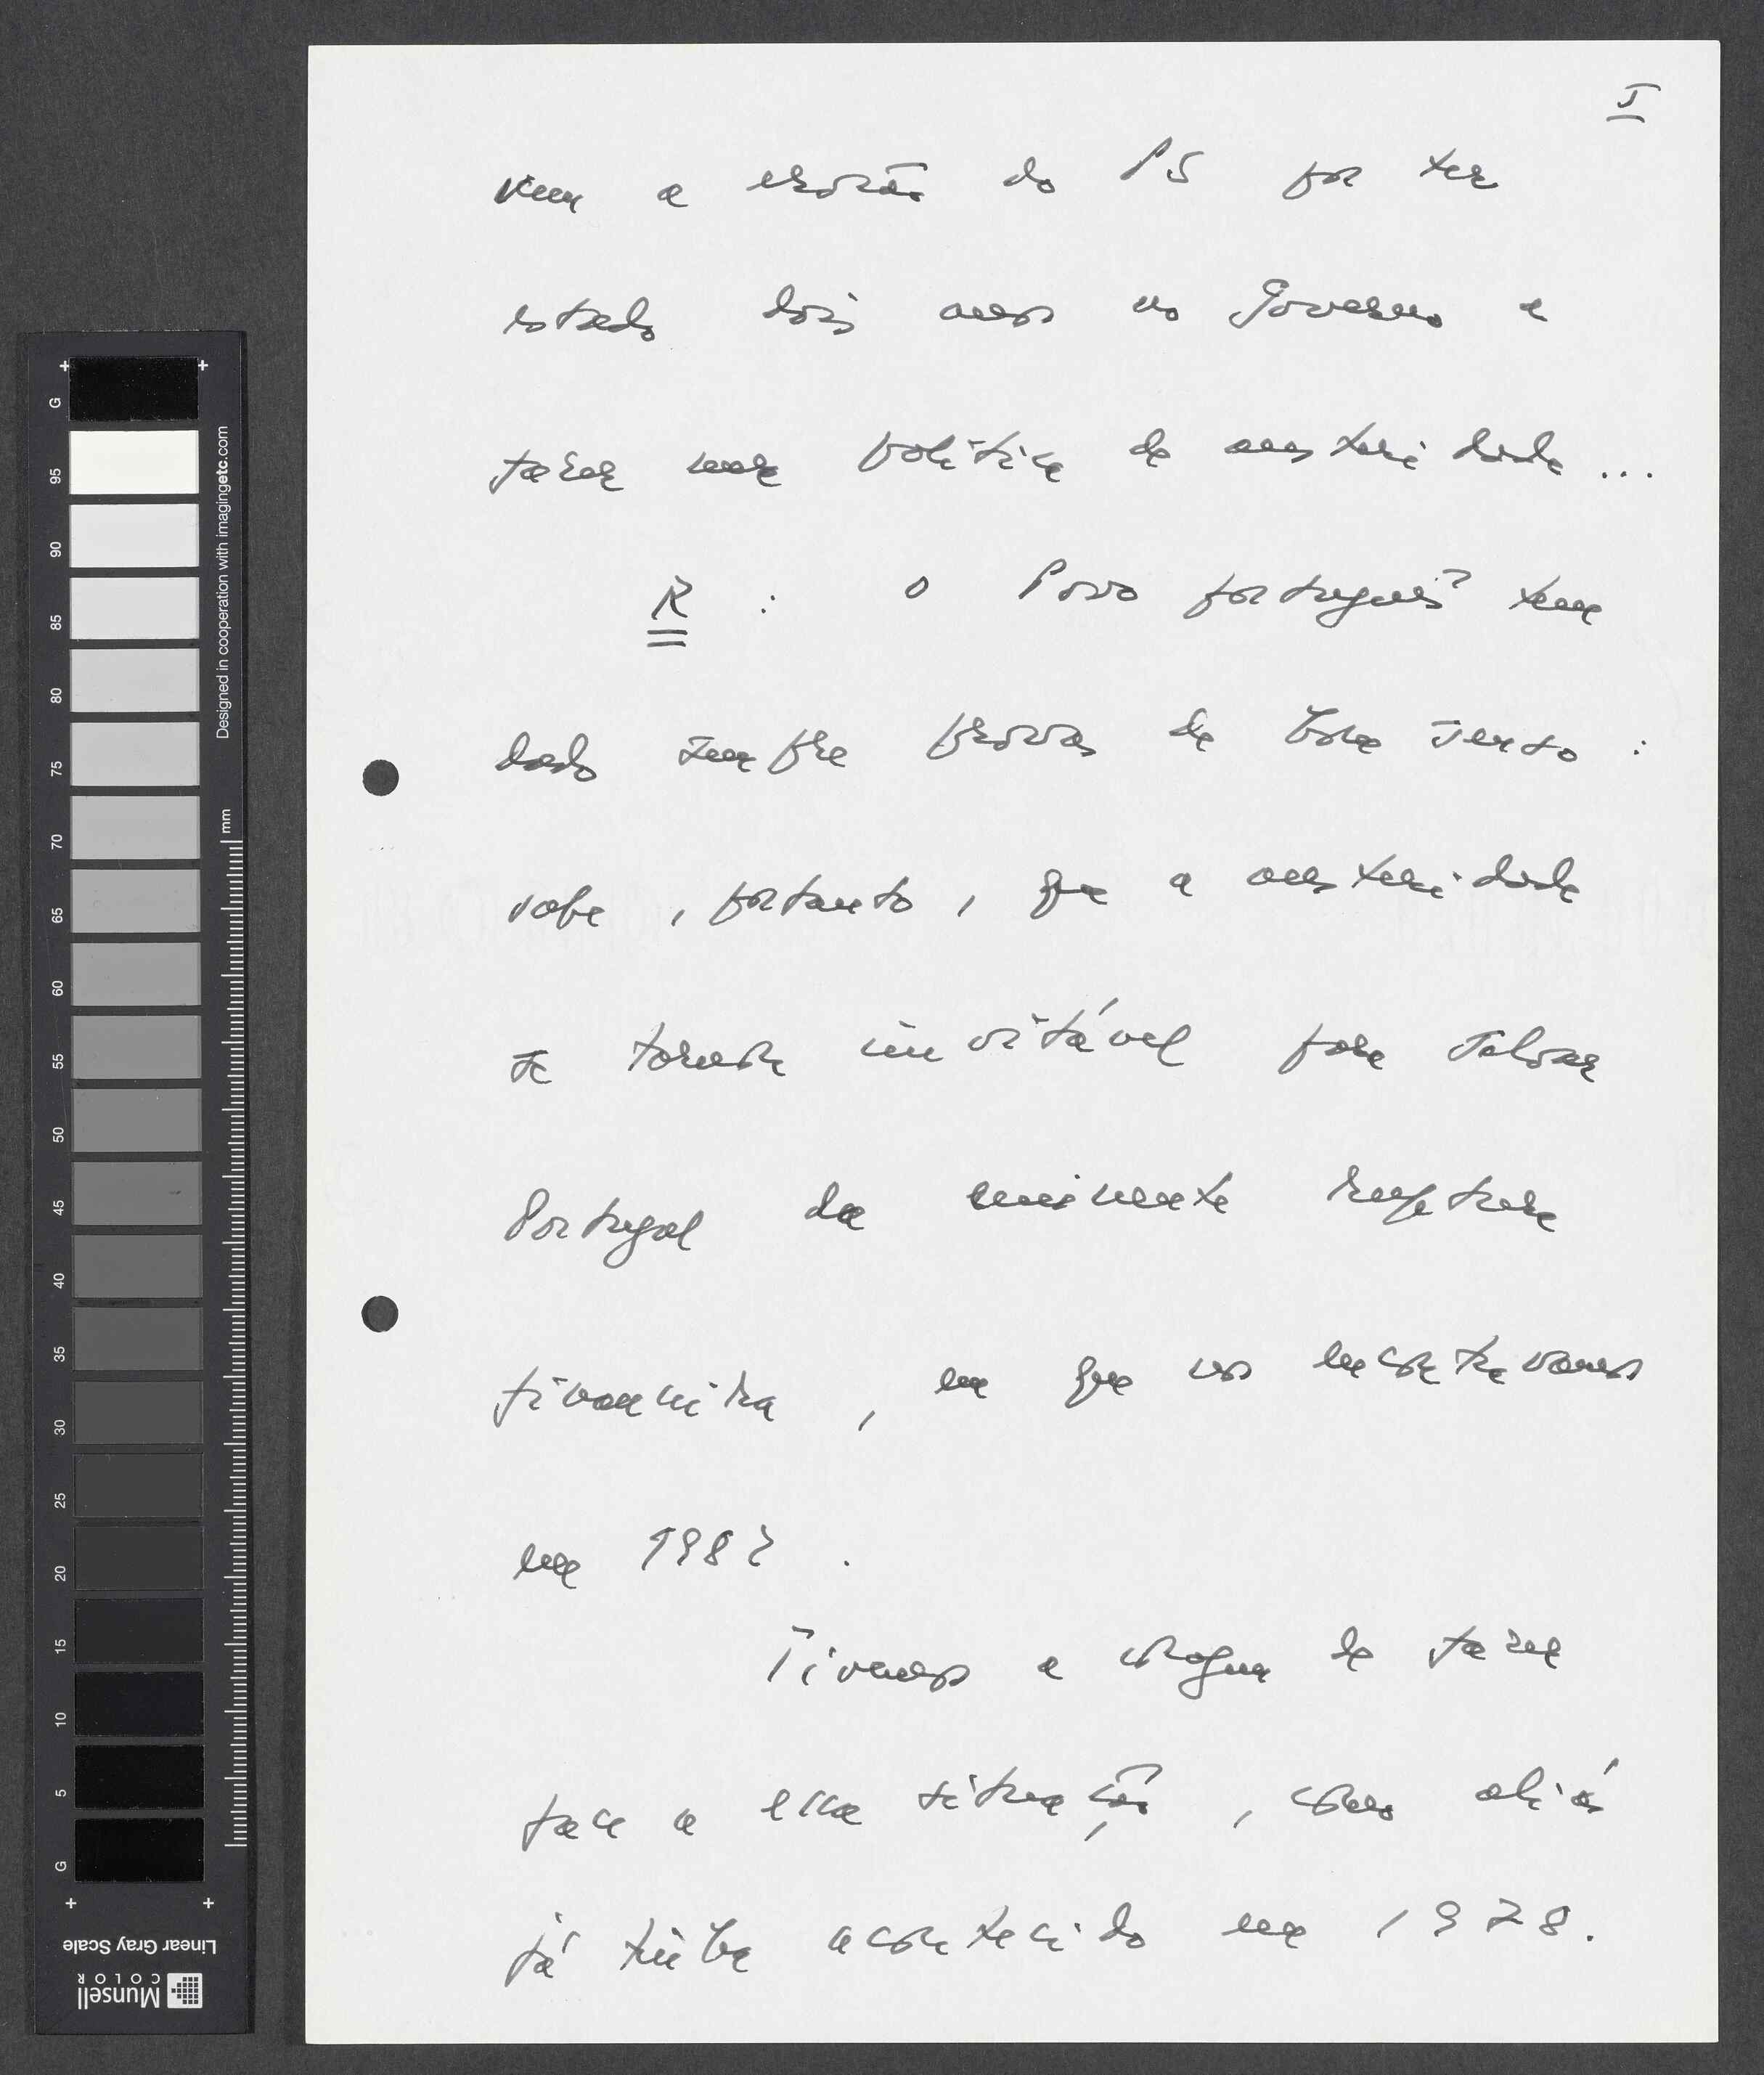 I
vem a erosão do PS por ter
estado dois anos no Governo a
fazer uma política de austeridade ...
R : o Povo português tem
dado sempre provas de bom senso :
sabe , portanto , que a austeridade
se tornou inevitável para salvar
Portugal da iminente ruptura
financeira , em que nos encontrávamos
em 1982 .
Tivemos a coragem de fazer
face a essa situação , como aliás
já tinha acontecido em 1978 .
G
95
90
85
80
75
70
65
60
55
50
45
40
35
30
25
20
15
10
5
G
mm
Designed in cooperation with imagingetc.com
Linear Gray Scale
Munsell
COLOR